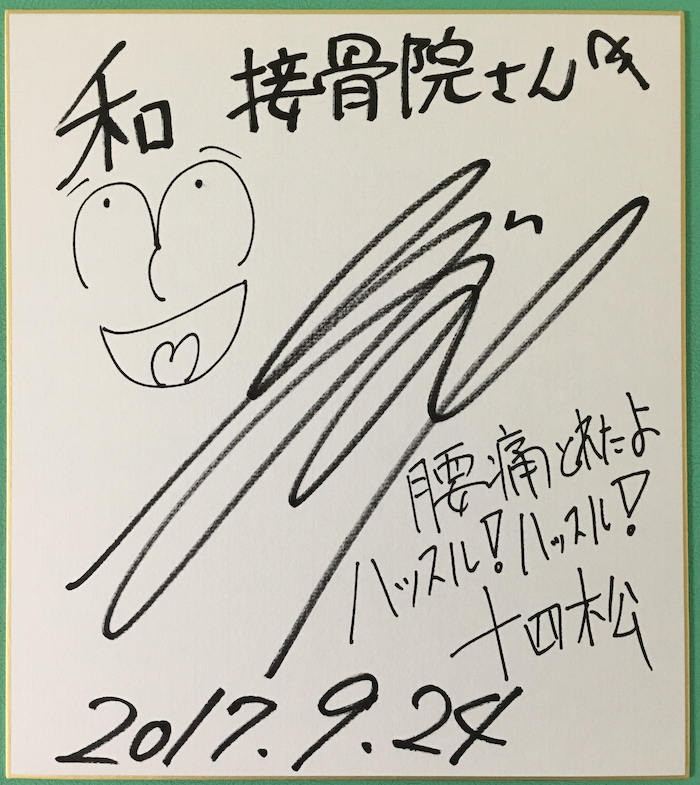 和 接骨院さん江
腰痛とれたよ
ハッスル!ハッスル!
十四松
2017.9.24